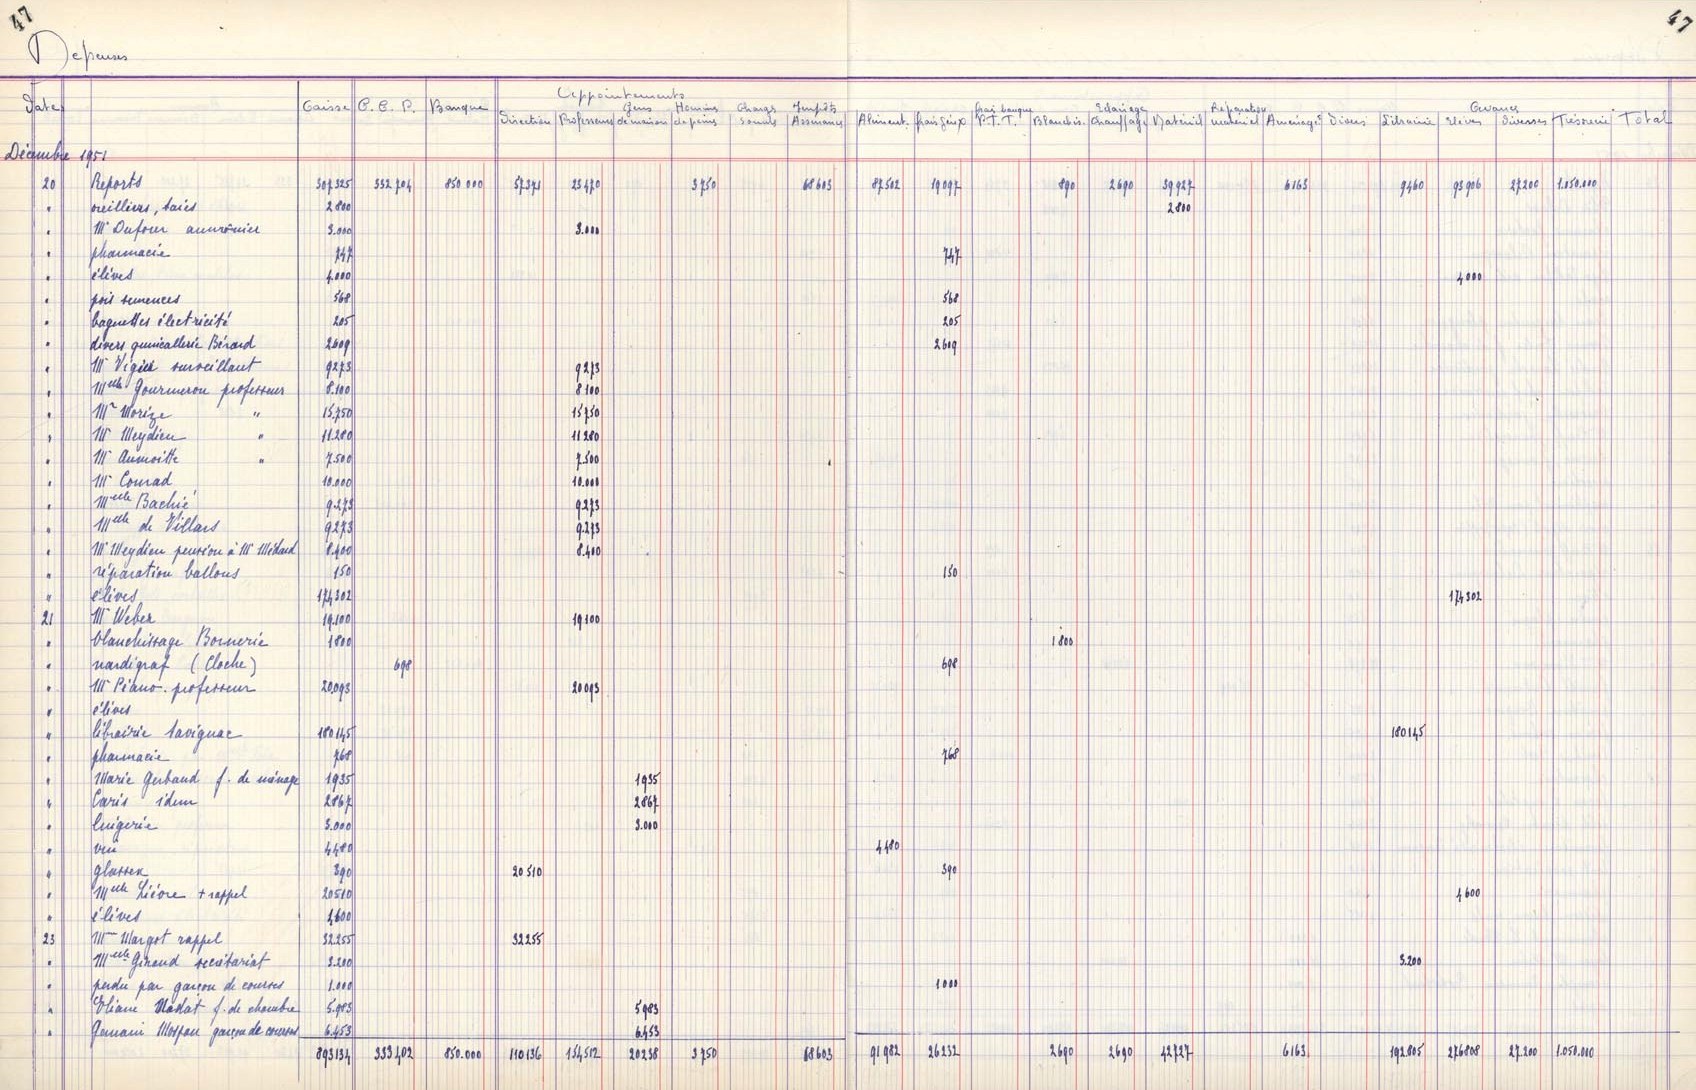 47 47
Depenses
Appointements
Date Caisse C.C.P. Banque Direction Professeurs Gens de maison Hommes de peine Charges Impôts Assurances Aliment. frais géux frais banque P.T.T. Blanchis. Eclairage chauffage Matériel Réparation matériel Aménagt Divers Librairie Avances élèves diverses Trésorerie Total
Décembre 1951
20 Reports 507325 332.704 850.000 57371 23470 3750 68603 87502 19097 890 2690 39927 6163 9460 93906 27.200 1.050.000
" oreillers, taies 2800 2800
" Mr Dufour aumônier 3.000 3.000
" pharmacie 747 747
" élèves 4.000 4000
" pois semences 568 568
" baguettes électricité 205 205
" divers quincaillerie Bérard 2609 2609
" Mr Vigier surveillant 9273 9273
" Melle Gourmeron professeur 8.100 8100
" Mr Morize " 15.750 15750
" Mr Meydieu " 11.280 11280
" Mr Aumoitte " 7.500 7.500
" Mr Conrad 10.000 10.000
" Melle Bachié 9.273 9273
" Melle de Villars 9273 9273
" Mr Meydieu pension à Mr Médard 8.400 8.400
" réparation ballons 150 150
" élèves 174302 174302
21 Mr Weber 19.100 19100
" blanchissage Bornerie 1800 1800
" nardigraf (Cloche) 698 698
" Mr Péano. professeur 20.093 20093
" élèves
" librairie Savignac 180145 180145
" pharmacie 768 768
" Marie Gerbaud f. de ménage 1935 1935
" Caris idem 2867 2867
" lingerie 3.000 3.000
" vin 4480 4480
" glassex 390 20510 390
" Melle Lièvre + rappel 20510 4600
" élèves 4600
23 Mr Margot rappel 32255 32255
" Melle Giraud secrétariat 3.200 3.200
" perdu par garçon de courses 1.000 1000
" Eliane Madat f. de chambre 5.983 5983
" Germain Mossan garçon de courses 6.453 6453
893134 333402 850.000 110136 154512 20238 3750 68603 91982 26232 2690 2690 42727 6163 192805 276808 27.200 1.050.000